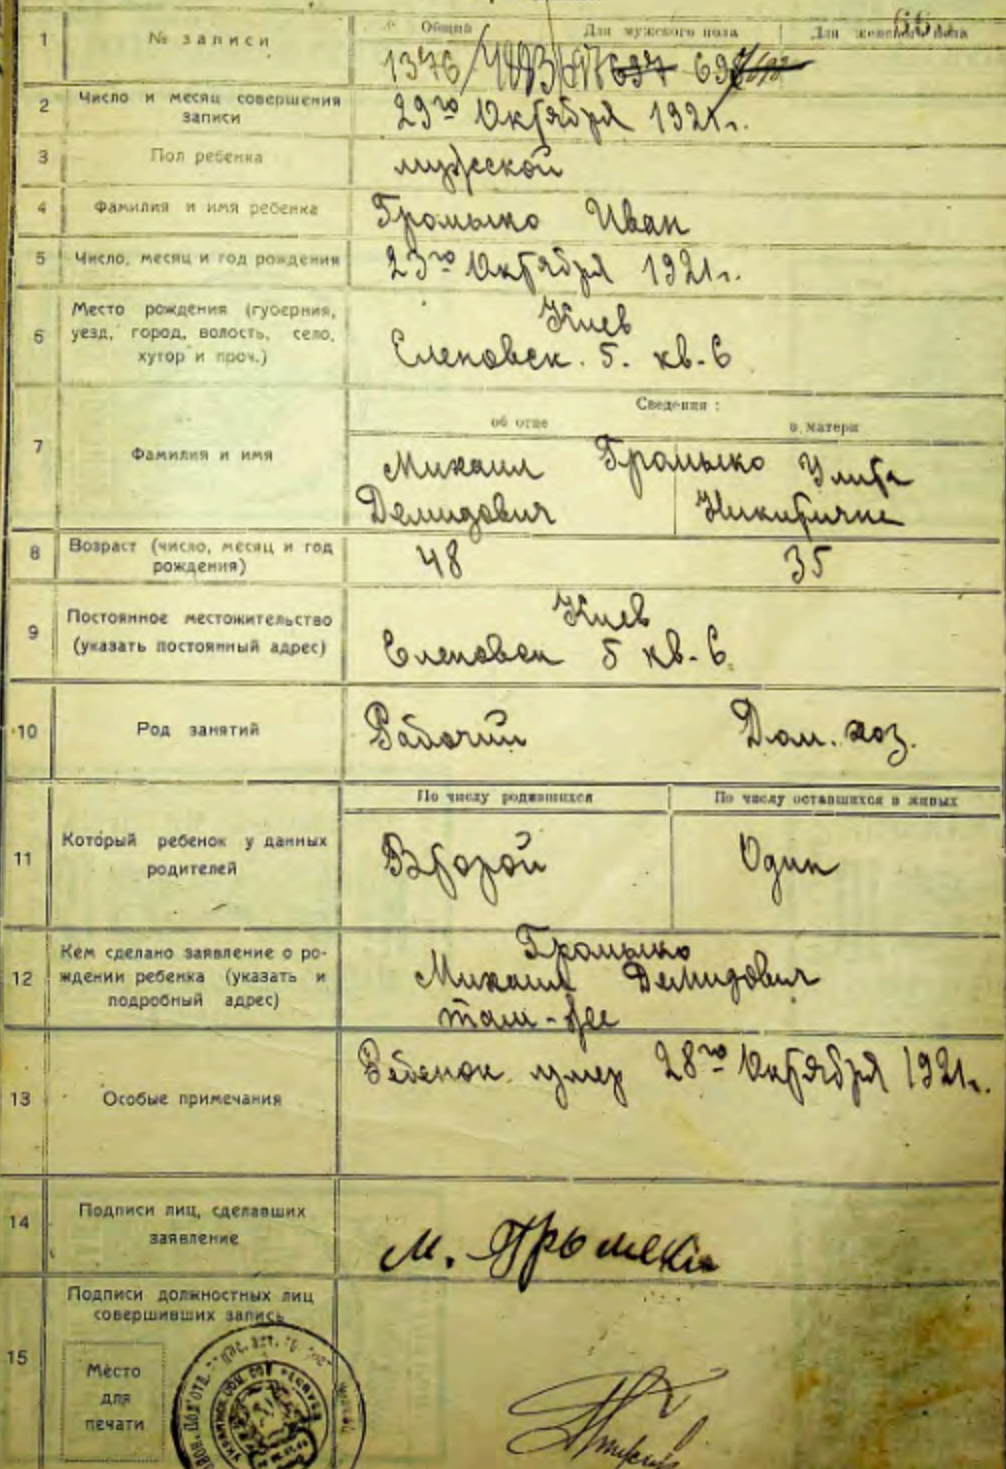 66
1
№ записи
Общий
Для мужского пола
Для женского пола
1376
2
Число и месяц совершения
записи
29го Октября 1921г.
3
Пол ребенка
мужской
4
Фамилия и имя ребенка
Громыко Иван
5
Число, месяц и год рождения
23го Октября 1921г.
6
Место рождения (губерния,
уезд, город, волость, село,
хутор и проч.)
Киев
Еленовск. 5. кв-6
Сведения:
об отце
о матери
7
Фамилия и имя
Михаил Громыко Улита
Демидович Никитична
8
Возраст (число, месяц и год
рождения)
48
35
9
Постоянное местожительство
(указать постоянный адрес)
Киев
Еленовск 5 кв-6
10
Род занятий
Рабочий
Дом. хоз.
По числу родившихся
По числу оставшихся в живых
11
Который ребенок у данных
родителей
Второй
Один
12
Кем сделано заявление о ро-
ждении ребенка (указать и
подробный адрес)
Громыко
Михаил Демидович
там-же
13
Особые примечания
Ребенок умер 28го Октября 1921г.
14
Подписи лиц, сделавших
заявление
М.
Подписи должностных лиц
совершивших запись
15
Место
для
печати